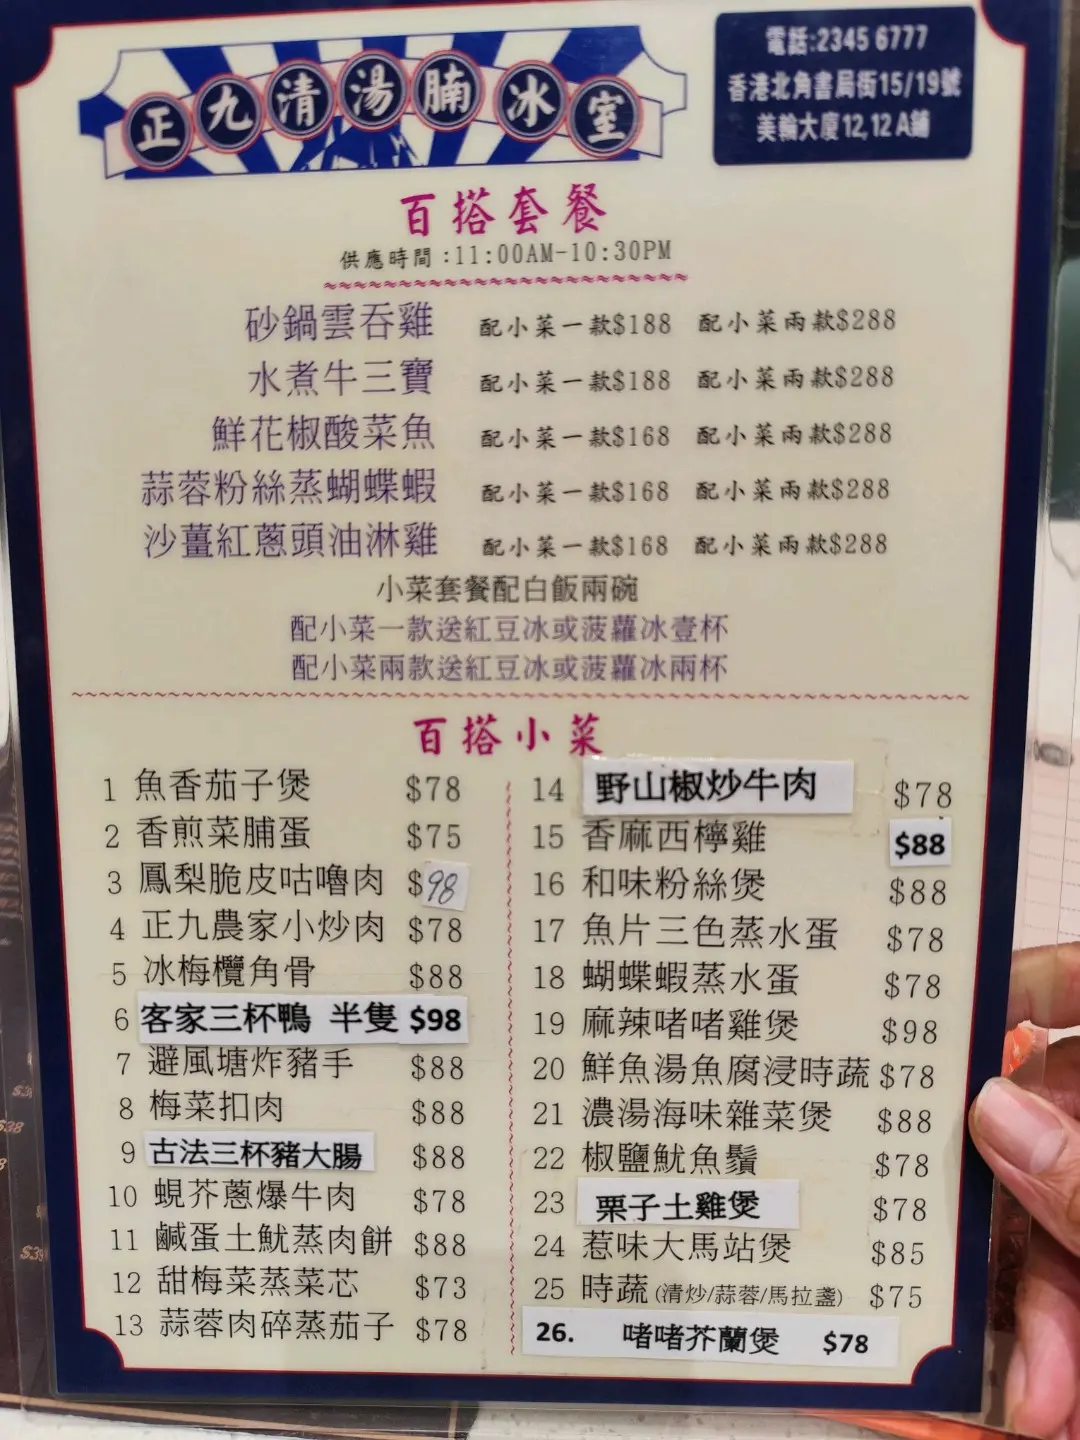 正九清湯腩冰室
電話:2345 6777
香港北角書局街15/19號
美輪大廈12,12A鋪
百搭套餐
供應時間:11:00AM-10:30PM
砂鍋雲吞雞 配小菜一款$188 配小菜兩款$288
水煮牛三寶 配小菜一款$188 配小菜兩款$288
鮮花椒酸菜魚 配小菜一款$168 配小菜兩款$288
蒜蓉粉絲蒸蝴蝶蝦 配小菜一款$168 配小菜兩款$288
沙薑紅蔥頭油淋雞 配小菜一款$168 配小菜兩款$288
小菜套餐配白飯兩碗
配小菜一款送紅豆冰或菠蘿冰壹杯
配小菜兩款送紅豆冰或菠蘿冰兩杯
百搭小菜
1 魚香茄子煲 $78
2 香煎菜脯蛋 $75
3 鳳梨脆皮咕嚕肉 $98
4 正九農家小炒肉 $78
5 冰梅欖角骨 $88
6 客家三杯鴨 半隻 $98
7 避風塘炸豬手 $88
8 梅菜扣肉 $88
9 古法三杯豬大腸 $88
10 蜆芥蔥爆牛肉 $78
11 鹹蛋土魷蒸肉餅 $88
12 甜梅菜蒸菜芯 $73
13 蒜蓉肉碎蒸茄子 $78
14 野山椒炒牛肉 $78
15 香麻西檸雞 $88
16 和味粉絲煲 $88
17 魚片三色蒸水蛋 $78
18 蝴蝶蝦蒸水蛋 $78
19 麻辣啫啫雞煲 $98
20 鮮魚湯魚腐浸時蔬 $78
21 濃湯海味雜菜煲 $88
22 椒鹽魷魚鬚 $78
23 栗子土雞煲 $78
24 惹味大馬站煲 $85
25 時蔬(清炒/蒜蓉/馬拉盞) $75
26. 啫啫芥蘭煲 $78